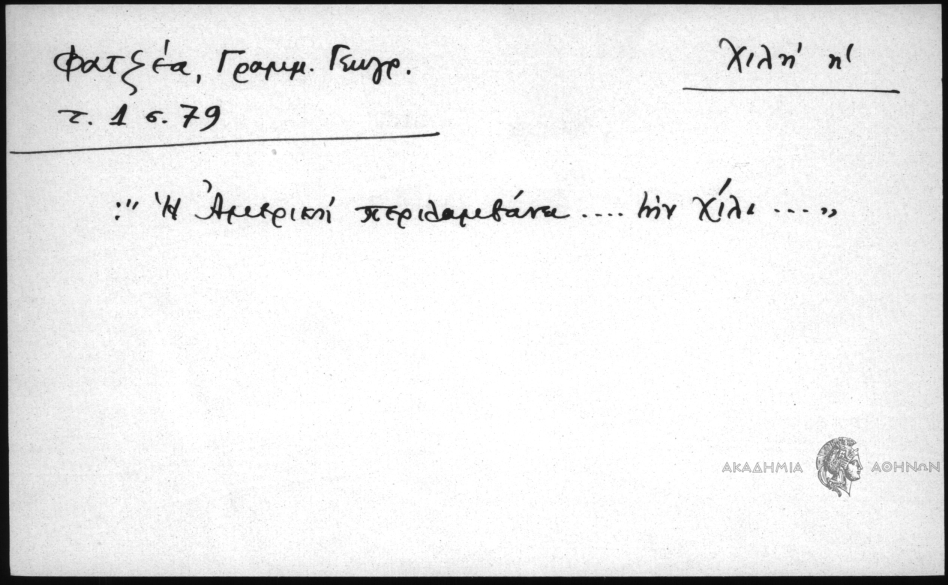 Φατζέα, Γραμμ. Γεωγρ.
τ. 1 σ. 79
Χιλή ἡ
:" Ἡ Ἀμερικὴ περιλαμβάνει .... τὴν Χίλι ...."
ΑΚΑΔΗΜΙΑ ΑΘΗΝΩΝ